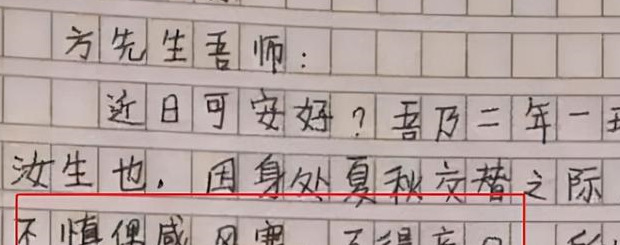 方先生吾师：
近日可安好？吾乃二年一班
汝生也，因身处夏秋交替之际
不慎偶感风寒